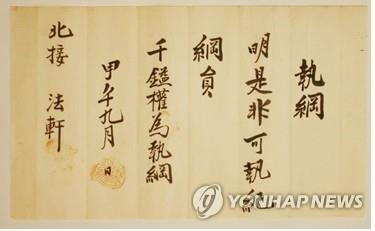 執綱
明是非可執紀
綱員
千鎰權為執綱
甲午九月 日
北接 法軒
YONHAP NEWS